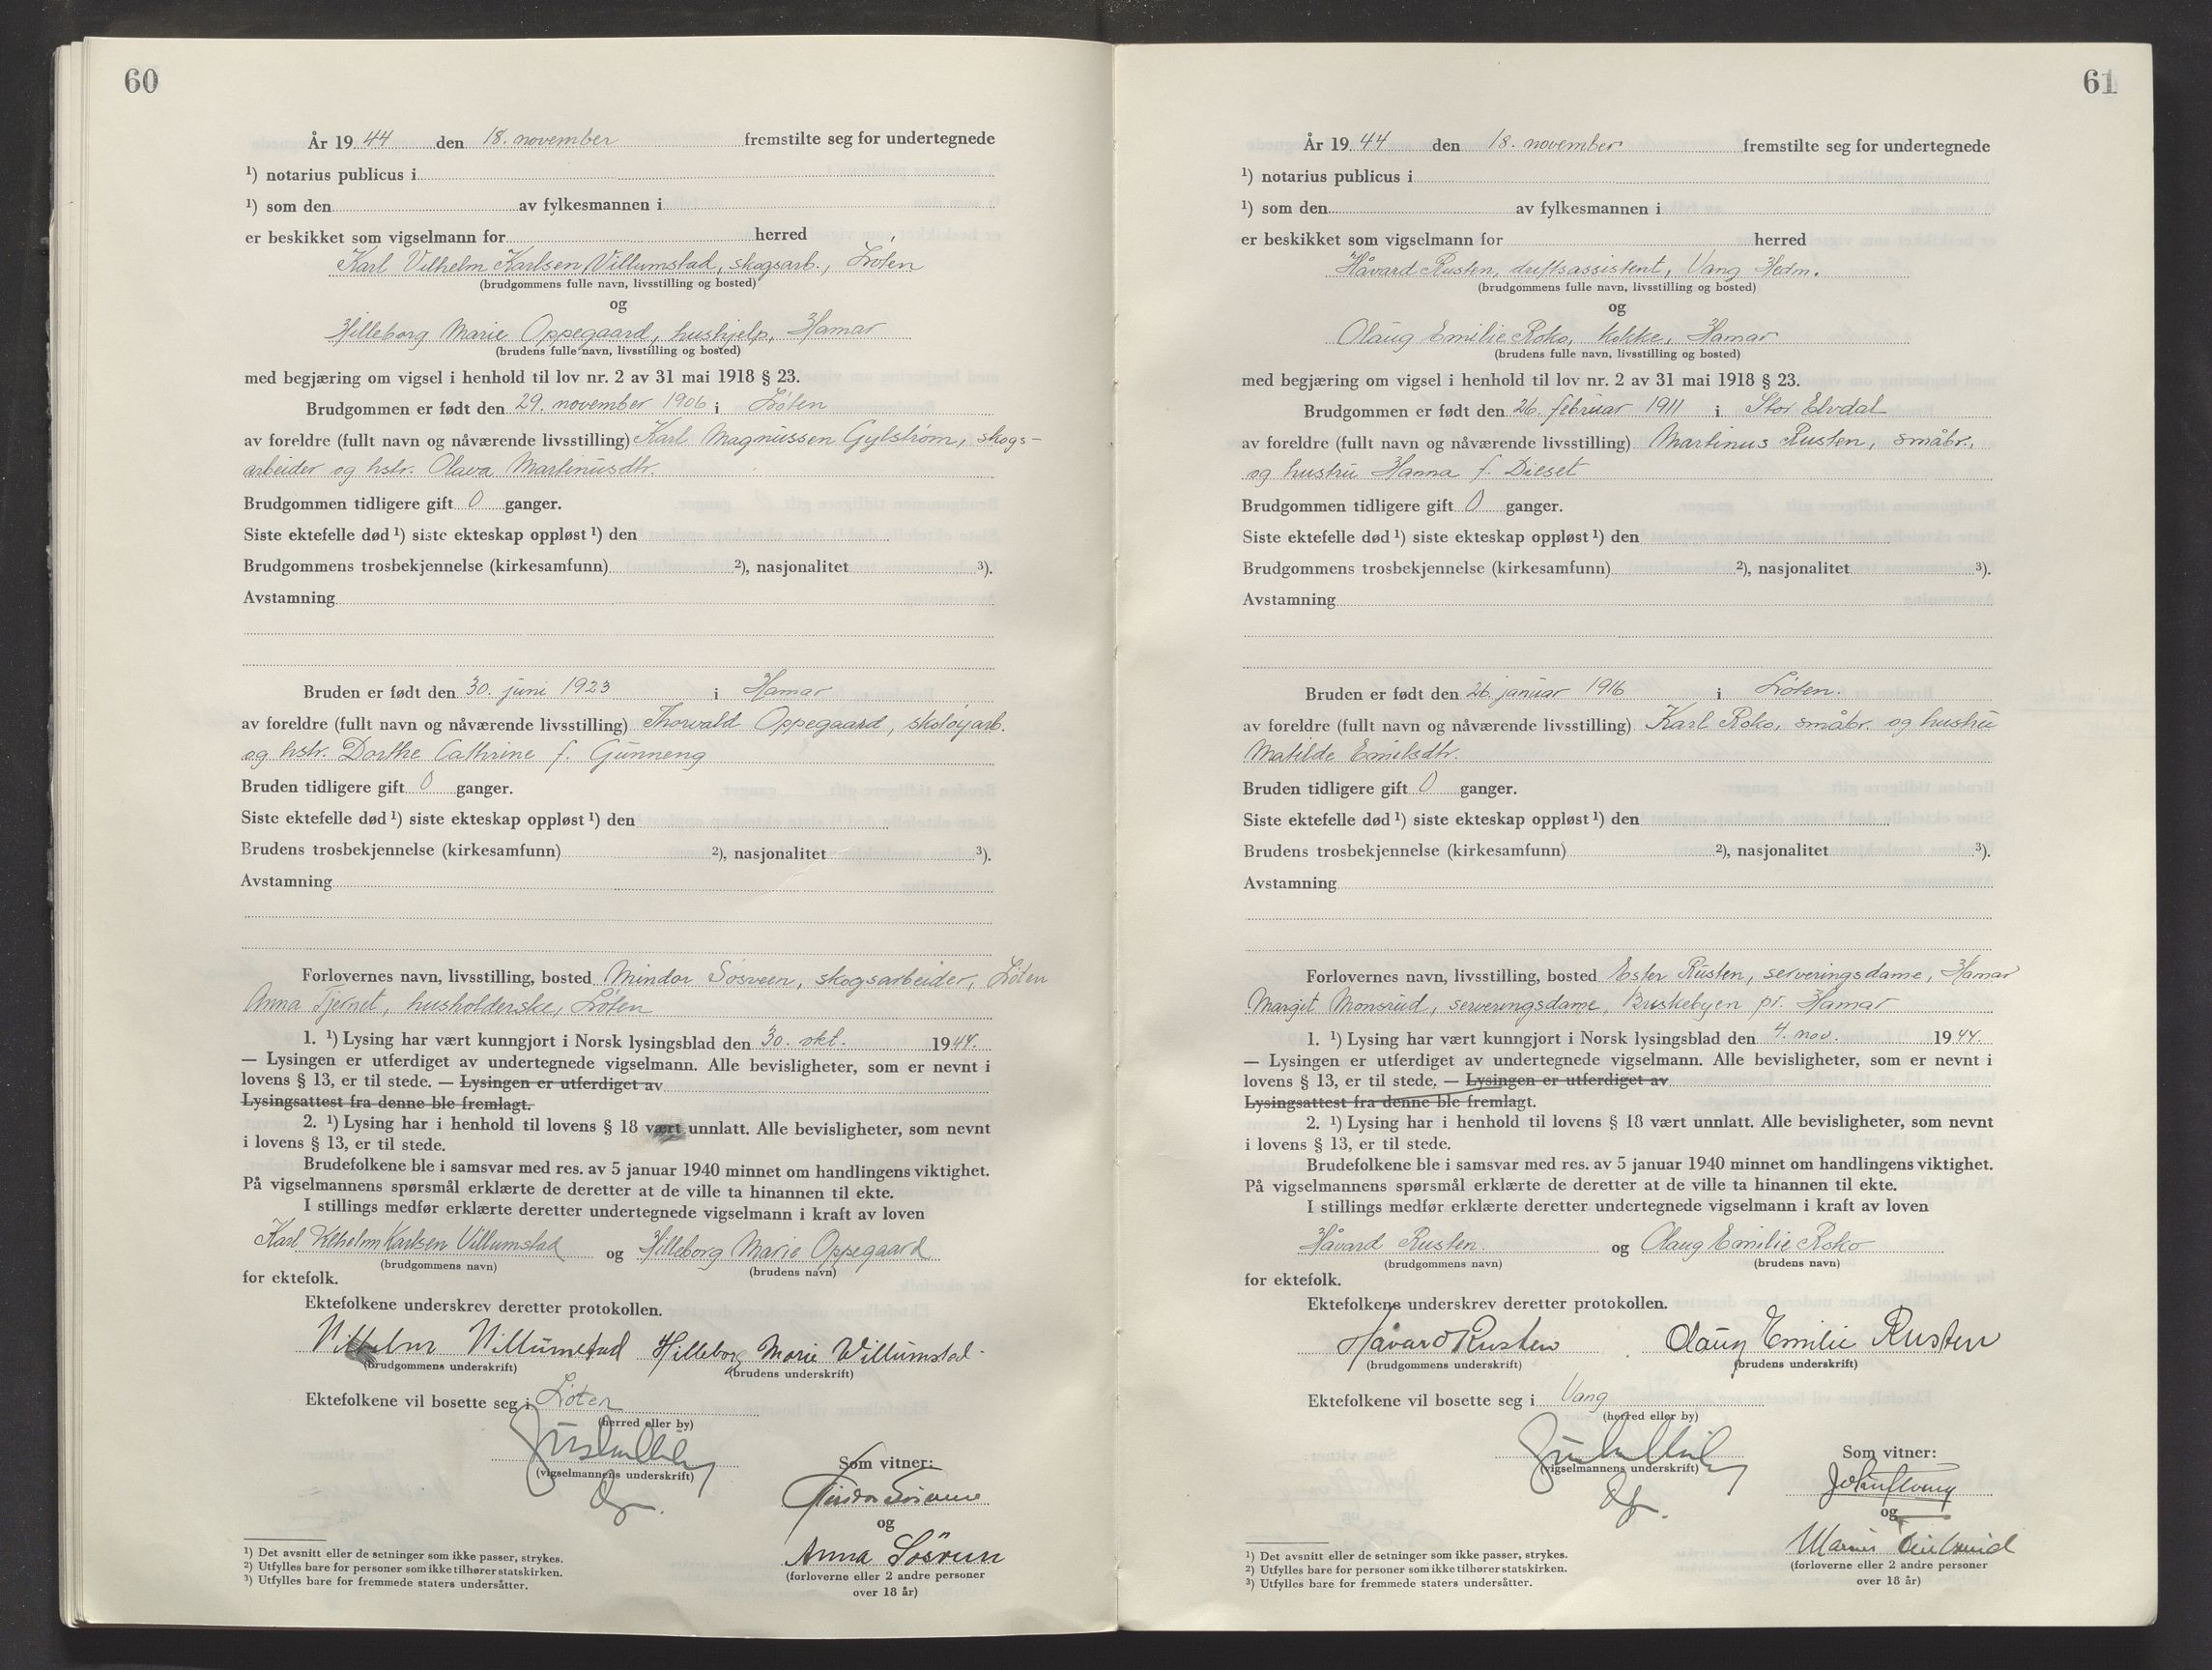 60
År 19 44 den 18. november fremstilte seg for undertegnede
¹) notarius publicus i
¹) som den av fylkesmannen i
er beskikket som vigselmann for herred
Karl Vilhelm Karlsen Villumstad, skogsarb., Løten
(brudgommens fulle navn, livsstilling og bosted)
og
Hilleborg Marie Oppegaard, hushjelp, Hamar
(brudens fulle navn, livsstilling og bosted)
med begjæring om vigsel i henhold til lov nr. 2 av 31 mai 1918 § 23.
Brudgommen er født den 29. november 1906 i Løten
av foreldre (fullt navn og nåværende livsstilling) Karl Magnussen Gylstrøm, skogs-
arbeider og hstr. Olava Martinusdtr.
Brudgommen tidligere gift 0 ganger.
Siste ektefelle død ¹) siste ekteskap oppløst ¹) den
Brudgommens trosbekjennelse (kirkesamfunn) ²), nasjonalitet ³).
Avstamning
Bruden er født den 30. juni 1923 i Hamar
av foreldre (fullt navn og nåværende livsstilling) Thorvald Oppegaard, skotøyarb.
og hstr. Dorthe Cathrine f. Gunneng
Bruden tidligere gift 0 ganger.
Siste ektefelle død ¹) siste ekteskap oppløst ¹) den
Brudens trosbekjennelse (kirkesamfunn) ²), nasjonalitet ³).
Avstamning
Forlovernes navn, livsstilling, bosted Mindor Søsveen, skogsarbeider, Løten
Anna Tjernet, husholderske, Løten
1. ¹) Lysing har vært kunngjort i Norsk lysingsblad den 30. okt. 1944.
— Lysingen er utferdiget av undertegnede vigselmann. Alle bevisligheter, som er nevnt i
lovens § 13, er til stede. — Lysingen er utferdiget av
Lysingsattest fra denne ble fremlagt.
2. ¹) Lysing har i henhold til lovens § 18 vært unnlatt. Alle bevisligheter, som nevnt
i lovens § 13, er til stede.
Brudefolkene ble i samsvar med res. av 5 januar 1940 minnet om handlingens viktighet.
På vigselmannens spørsmål erklærte de deretter at de ville ta hinannen til ekte.
I stillings medfør erklærte deretter undertegnede vigselmann i kraft av loven
Karl Vilhelm Karlsen Villumstad og Hilleborg Marie Oppegaard
(brudgommens navn) (brudens navn)
for ektefolk.
Ektefolkene underskrev deretter protokollen.
Vilhelm Villumstad Hilleborg Marie Villumstad.
(brudgommens underskrift) (brudens underskrift)
Ektefolkene vil bosette seg i Løten
(herred eller by)
(vigselmannens underskrift)
Som vitner:
Mindor Søsveen
og
Anna Søsveen
(forloverne eller 2 andre personer
over 18 år)
¹) Det avsnitt eller de setninger som ikke passer, strykes.
²) Utfylles bare for personer som ikke tilhører statskirken.
³) Utfylles bare for fremmede staters undersåtter.
61
År 19 44 den 18. november fremstilte seg for undertegnede
¹) notarius publicus i
¹) som den av fylkesmannen i
er beskikket som vigselmann for herred
Håvard Rusten, driftsassistent, Vang Hedm.
(brudgommens fulle navn, livsstilling og bosted)
og
Olaug Emilie Roko, kokke, Hamar
(brudens fulle navn, livsstilling og bosted)
med begjæring om vigsel i henhold til lov nr. 2 av 31 mai 1918 § 23.
Brudgommen er født den 26. februar 1911 i Stor Elvdal
av foreldre (fullt navn og nåværende livsstilling) Martinus Rusten, småbr.,
og hustru Hanna f. Dieset
Brudgommen tidligere gift 0 ganger.
Siste ektefelle død ¹) siste ekteskap oppløst ¹) den
Brudgommens trosbekjennelse (kirkesamfunn) ²), nasjonalitet ³).
Avstamning
Bruden er født den 26. januar 1916 i Løten.
av foreldre (fullt navn og nåværende livsstilling) Karl Roko, småbr. og hustru
Matilde Emilsdtr.
Bruden tidligere gift 0 ganger.
Siste ektefelle død ¹) siste ekteskap oppløst ¹) den
Brudens trosbekjennelse (kirkesamfunn) ²), nasjonalitet ³).
Avstamning
Forlovernes navn, livsstilling, bosted Ester Rusten, serveringsdame, Hamar
Margit Monsrud, serveringsdame, Briskebyen pr. Hamar
1. ¹) Lysing har vært kunngjort i Norsk lysingsblad den 4. nov. 1944.
— Lysingen er utferdiget av undertegnede vigselmann. Alle bevisligheter, som er nevnt i
lovens § 13, er til stede. — Lysingen er utferdiget av
Lysingsattest fra denne ble fremlagt.
2. ¹) Lysing har i henhold til lovens § 18 vært unnlatt. Alle bevisligheter, som nevnt
i lovens § 13, er til stede.
Brudefolkene ble i samsvar med res. av 5 januar 1940 minnet om handlingens viktighet.
På vigselmannens spørsmål erklærte de deretter at de ville ta hinannen til ekte.
I stillings medfør erklærte deretter undertegnede vigselmann i kraft av loven
Håvard Rusten. og Olaug Emilie Roko
(brudgommens navn) (brudens navn)
for ektefolk.
Ektefolkene underskrev deretter protokollen.
Håvard Rusten Olaug Emilie Rusten
(brudgommens underskrift) (brudens underskrift)
Ektefolkene vil bosette seg i Vang
(herred eller by)
(vigselmannens underskrift)
Som vitner:
og
(forloverne eller 2 andre personer
over 18 år)
¹) Det avsnitt eller de setninger som ikke passer, strykes.
²) Utfylles bare for personer som ikke tilhører statskirken.
³) Utfylles bare for fremmede staters undersåtter.